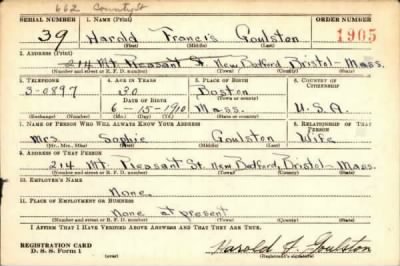 662 County St
SERIAL NUMBER 1. NAME (Print) ORDER NUMBER
39 Harold Francis Goulston 1905
(First) (Middle) (Last)
2. ADDRESS (Print)
214 Mt. Pleasant St. New Bedford, Bristol - Mass.
(Number and street or R. F. D. number) (Town) (County) (State)
3. TELEPHONE 4. AGE IN YEARS 5. PLACE OF BIRTH 6. COUNTRY OF CITIZENSHIP
3-0897 30 Boston
DATE OF BIRTH (Town or county)
6-15-1910 Mass. U.S.A.
(Exchange) (Number) (Mo.) (Day) (Yr.) (State or country)
7. NAME OF PERSON WHO WILL ALWAYS KNOW YOUR ADDRESS 8. RELATIONSHIP OF THAT PERSON
Mrs. Sophie Goulston Wife
(Mr., Mrs., Miss) (First) (Middle) (Last)
9. ADDRESS OF THAT PERSON
214 Mt. Pleasant St. New Bedford, Bristol - Mass.
(Number and street or R. F. D. number) (Town) (County) (State)
10. EMPLOYER'S NAME
None.
11. PLACE OF EMPLOYMENT OR BUSINESS
None at present
(Number and street or R. F. D. number) (Town) (County) (State)
I AFFIRM THAT I HAVE VERIFIED ABOVE ANSWERS AND THAT THEY ARE TRUE.
REGISTRATION CARD
D. S. S. Form 1 (over) Harold F. Goulston
(Registrant's signature)